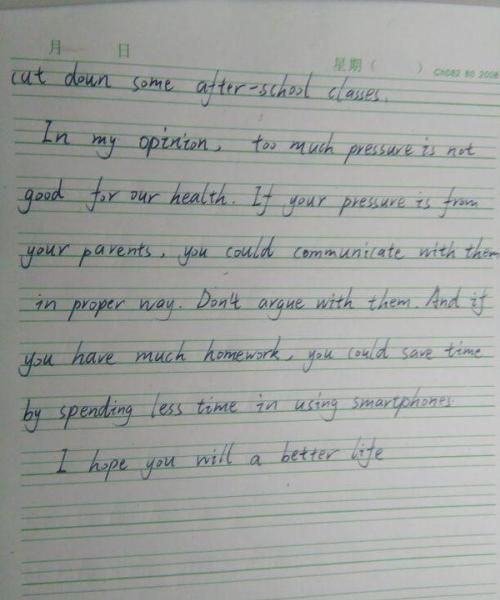 月 日 星期( ) Ch082 80 2008
cut down some after-school classes.
In my opinion, too much pressure is not
good for our health. If your pressure is from
your parents, you could communicate with them
in proper way. Don't argue with them. And if
you have much homework, you could save time
by spending less time in using smartphones.
I hope you will a better life